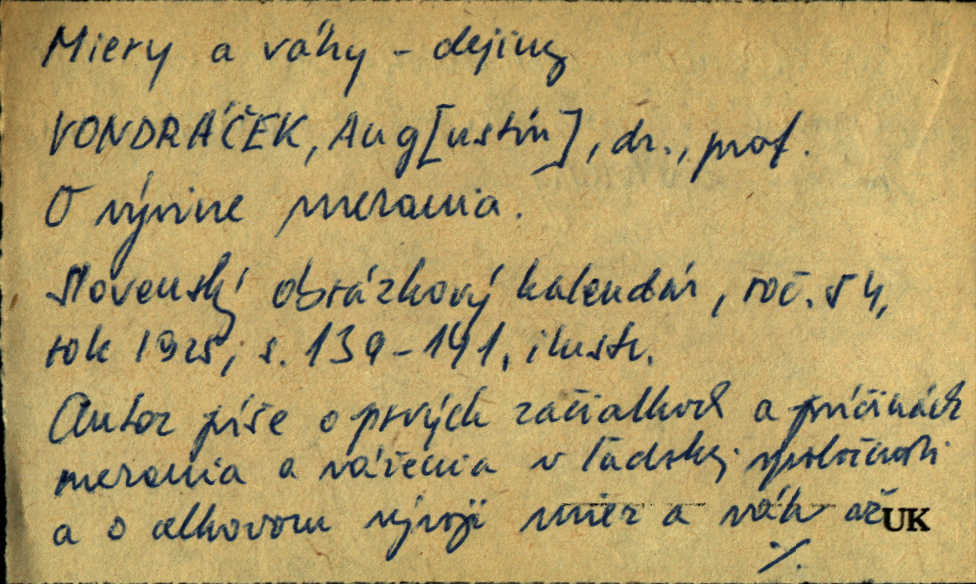 Miery a váhy - dejiny
VONDRÁČEK, Aug[ustín], dr., prof.
O vývine merania.
Slovenský obrázkový kalendár, roč. 54,
rok 1925, s. 139-141, ilustr.
Autor píše o prvých začiatkoch a príčinách
merania a váženia v ľudskej spoločnosti
a o celkovom vývoji mier a váh až
UK
./.